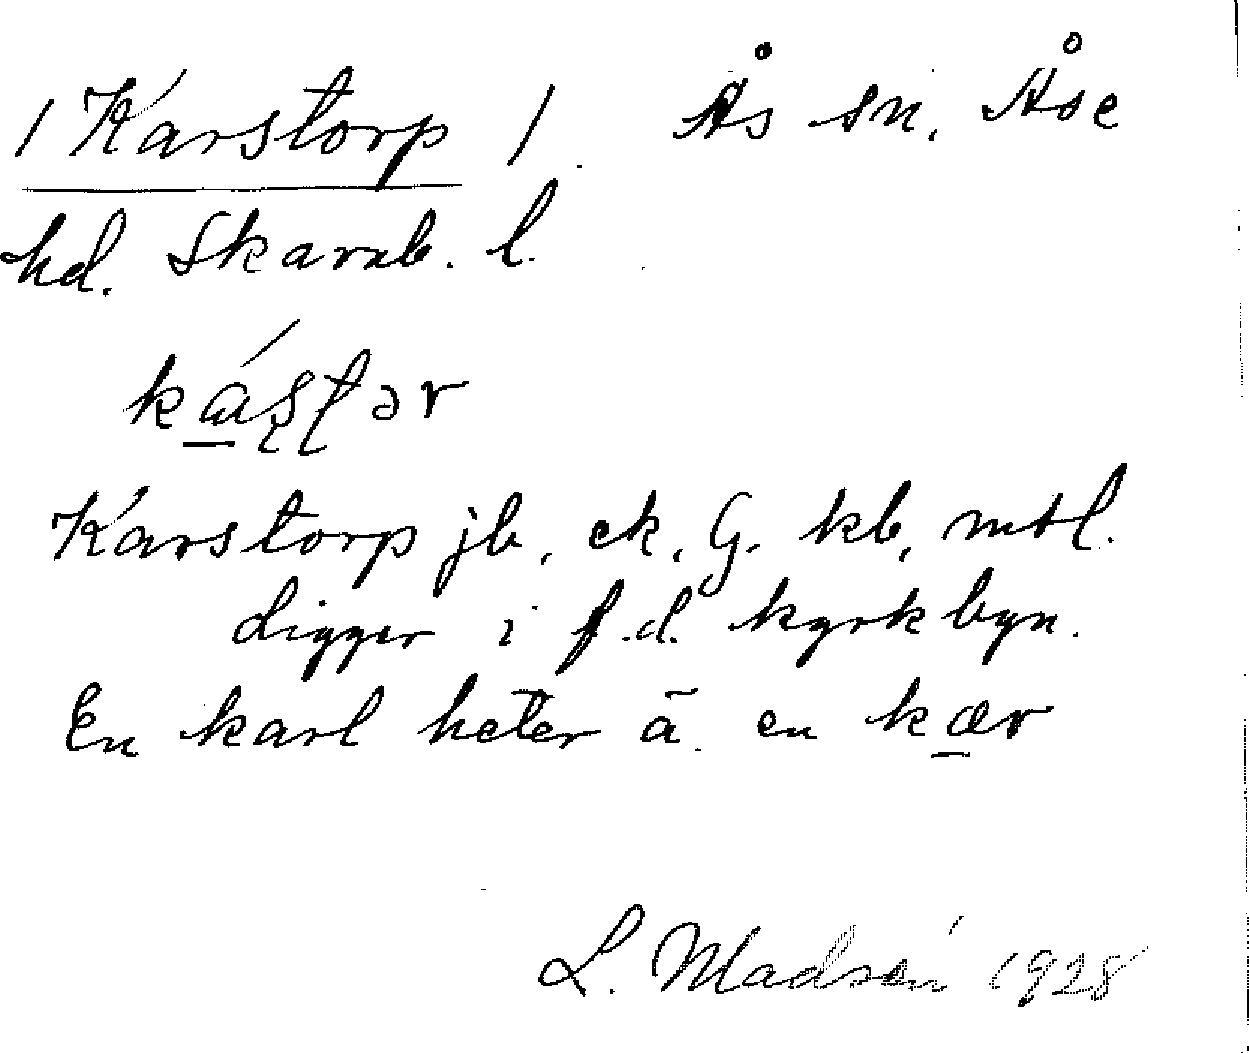 / Karstorp /. Ås sn, Åse
hd. Skarab. l.
kɑ́ʂʈər
Karstorp jb, ek, G. kb, mtl.
Ligger i f.d. kyrkbyn.
En karl heter ā en kær
L. Madsén 1928